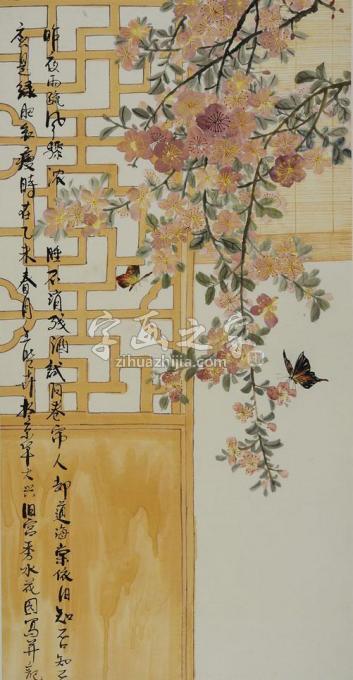 昨夜雨疏风骤浓睡不消残酒试问卷帘人却道海棠依旧知否知
应是绿肥红瘦时在乙未春月京华大兴旧宫秀水花园写并题
字画之家
zihuazhijia.com